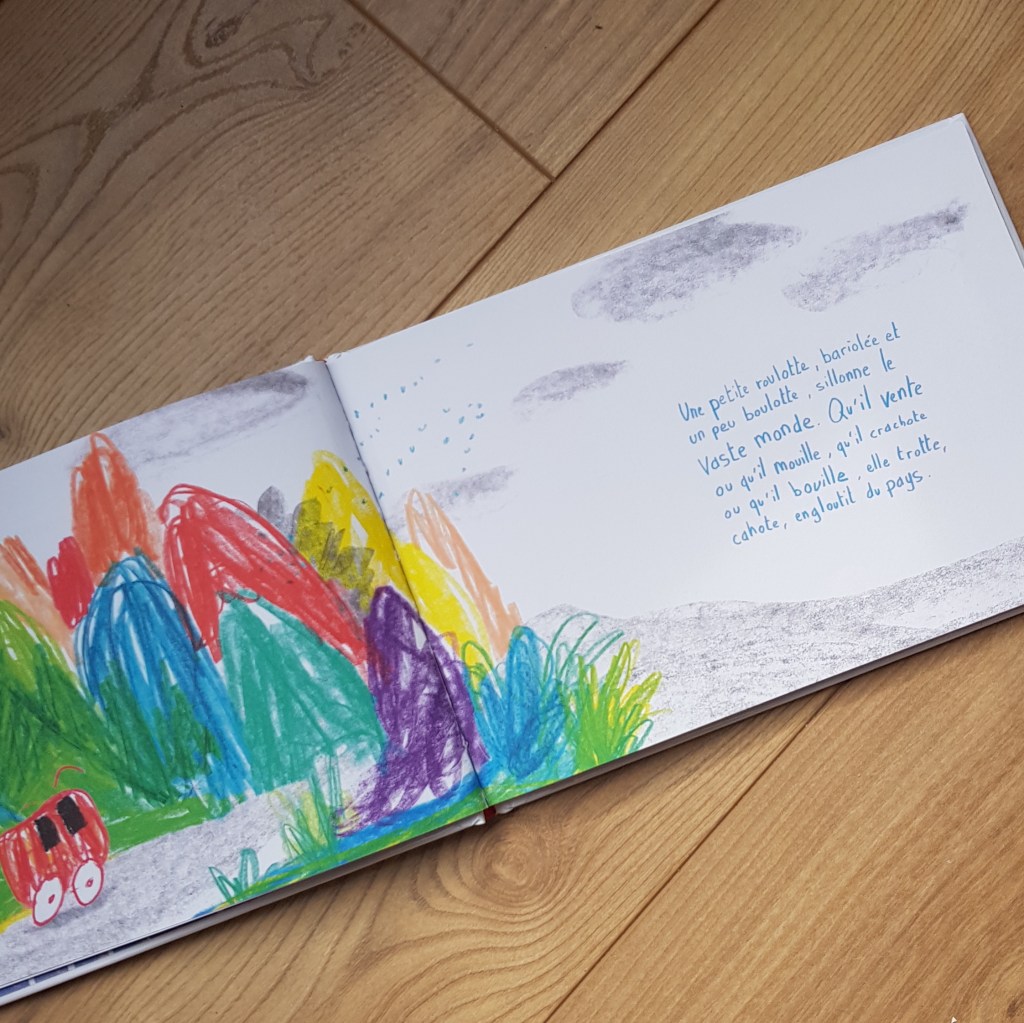 Une petite roulotte, bariolée et
un peu boulotte, sillonne le
vaste monde. Qu'il vente
ou qu'il mouille, qu'il crachote
ou qu'il bouille, elle trotte,
cahote, engloutit du pays.